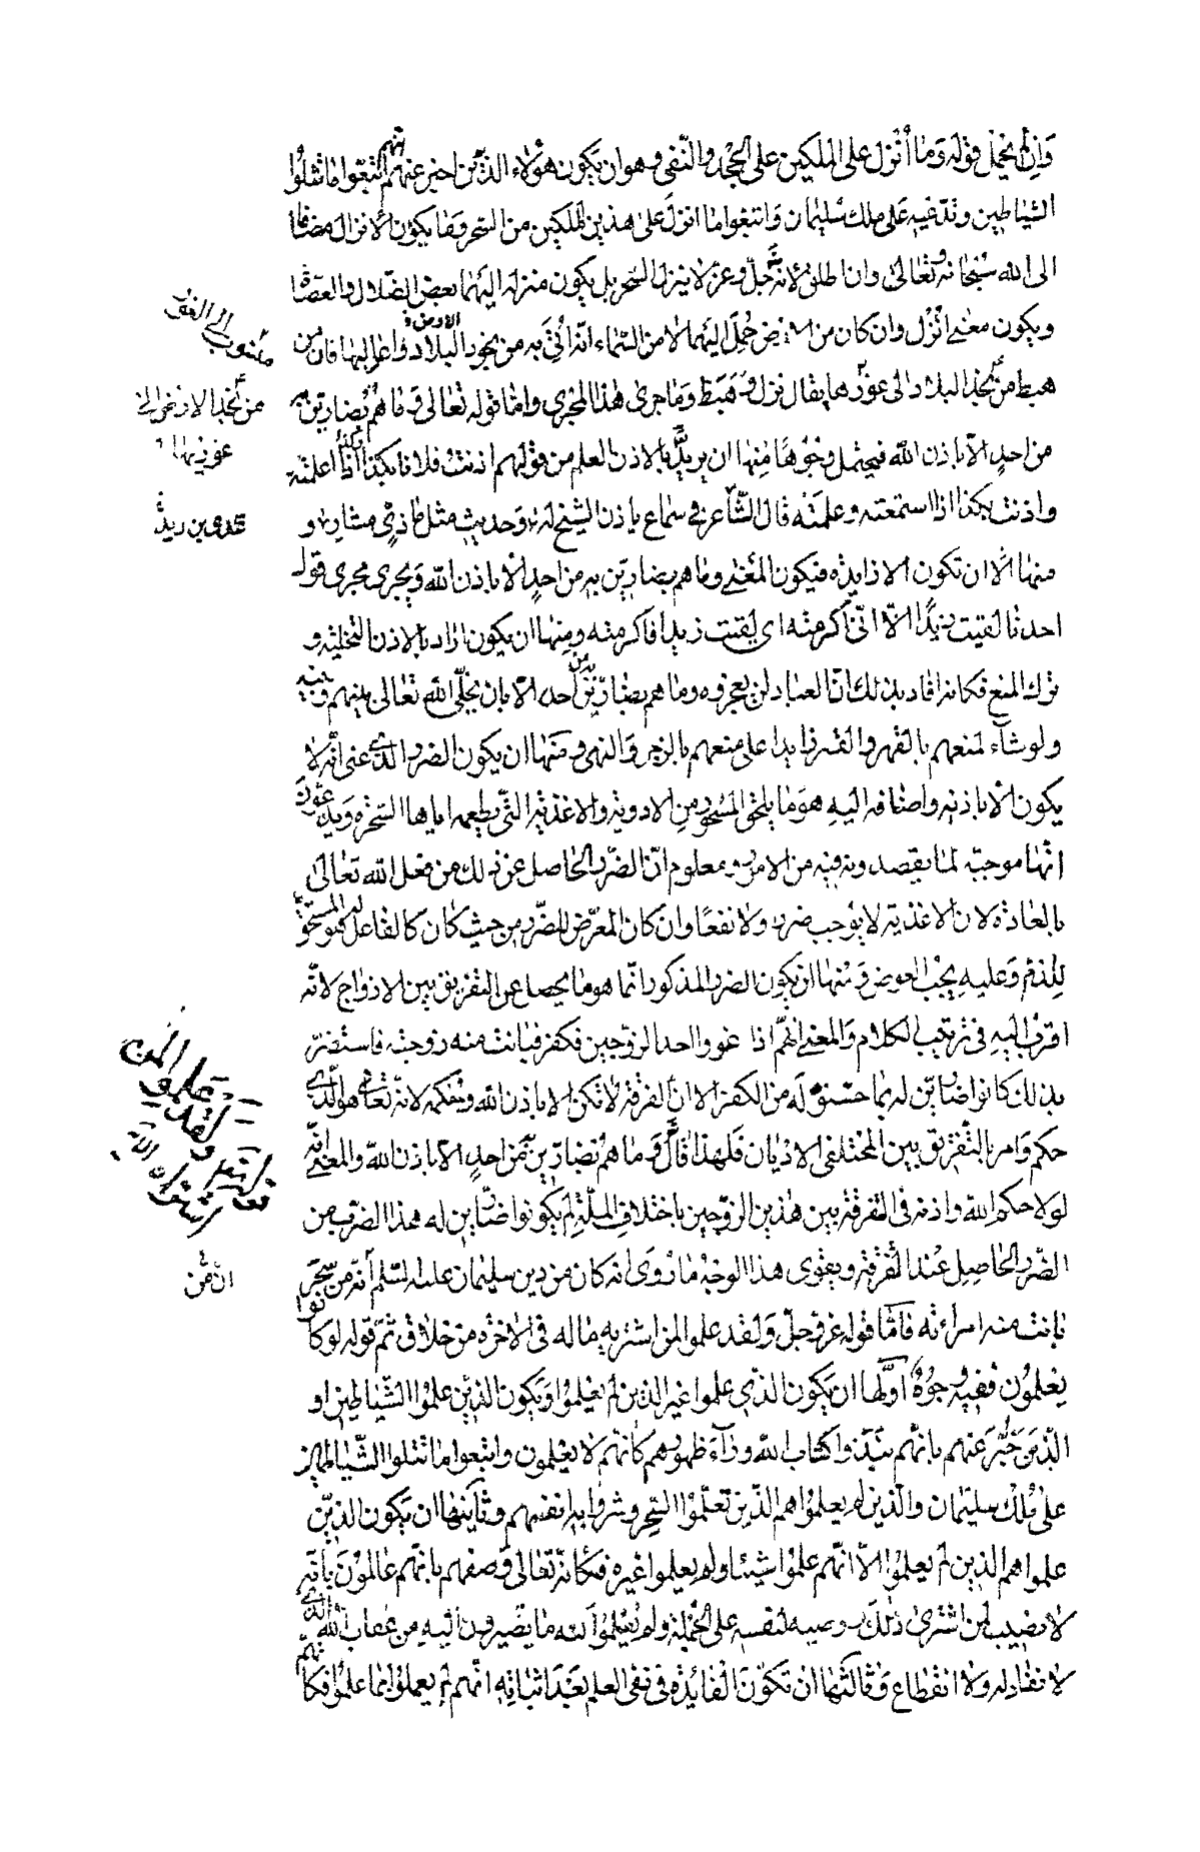 وان لم يحمل قوله وما أنزل على الملكين على الجحد والنّفى وهو ان يكون هؤلاء الذين اخبر عنهم انّهم اتّبعوا ما تتلوا
الشياطين وتدّعيه على ملك سليمان واتبعوا ما انزل على هذين الملكين من السحر وما يكون الانزال مضافا
الى الله سبحانه وتعالى وان اطلق لانه جلّ وعزّ لا ينزل السّحر بل يكون منزله اليهما بعض الضّلال والعصاة
ويكون معنى انزل وان كان من الارض حمل اليهما لا من السّماء انّه أتى به من نجود البلاد والارض و اعاليها فان من
هبط من نجد البلاد الى غورها يقال نزل وهبط وما جرى هذا المجرى وامّا قوله تعالى وما هم بضارّين به
من احدٍ الّا باذن الله فيحتمل وجوهًا منها ان يريد بالاذن العلم من قولهم اذنت فلانا بكذا اذا اعلمته
واذنت بكذا اذا استمعته وعلمته قال الشّاعر فى سماع ياذن الشيخ له، وحديث مثل ماذىّ مشار، و
منها ان تكون الّا زايدة فيكون المعنى وما هم بضارّين به من احدٍ الّا باذن الله ويجرى مجرى قول
احدنا لقيت زيدًا الّا انّى اكرمته اى لقيت زيدا فاكرمته ومنها ان يكون اراد بالاذن التخلية و
ترك المنع فكانه افاد بذلك انّ العباد لن يعجزوه وما هم بضارّين به من احد الّا بان يخلّى الله تعالى بينهم وبينه
ولو شآء لمنعهم بالقهر والقسر زايدا على منعهم بالزجر والنهى ومنها ان يكون الضرر الذى عنى انّه لا
يكون الّا باذنه واضافه اليه هو ما يلحق المسحور من الادوية والاغذية التّى يطعمه اياها السّحرة ويدّعون
انّها موجبة لما يقصدونه فيه من الامور ومعلوم انّ الضّرر الحاصل عن ذلك من فعل الله تعالى
بالعادة لان الاغذية لا يوجب ضررا ولا نفعًا وان كان المعرّض للضّرر من حيث كان كالفاعل له هو المستحق
للذم وعليه يجب العوض ومنها ان يكون الضرر المذكور انّما هو ما يحصل عن التفريق بين الازواج لانّه
اقرب اليه فى ترتيب الكلام والمعنى انّهم اذا غووا احد الزوجين فكفر فبانت منه زوجته فاستضرّ
بذلك كانوا ضارّين له بما حسّنوه له من الكفر الا انّ الفرقة لم تكن الا باذن الله وحكمه لانّه تعالى هو الّذى
حكم وامر بالتّفريق بين المختلفى الاديان فلهذا قال وما هم بضارّين به من احدٍ الّا باذن الله والمعنى انّه
لولا حكم الله واذنه فى الفرقة بين هذين الزوّجين باختلاف الملّة لم يكونوا ضارّين له هذا الضرب من
الضّرر الحاصل عند الفرقة ويقوى هذا الوجه ما روى انه كان من دين سليمان عليه السّلم أنّه من سحر
بانت منه امراءته فأمّا قوله عزّ وجلّ ولقد علموا لمن اشتريه ما له فى الاخرة من خلاق ثمّ قوله لو كانوا
يعلمون ففيه وجوه اوّلها ان يكون الذى علموا غير الذين لم يعلموا ويكون الذين علموا الشّياطين او
الّذين خبّر عنهم بانهم نبذوا كتاب الله ورآء ظهورهم كانهم لا يعلمون واتبعوا ما تتلوا الشّياطين
على ملك سليمان والّذين لم يعلموا هم الذّين تعلّموا السّحر وشروا به انفسهم وثانيها ان يكون الذين
علموا هم الذين لم يعلموا الّا انّهم علموا شيئا ولم يعلموا غيره فكانه تعالى وصفهم بانّهم عالمون بانّه
لا نصيب لمن اشترى ذلك ورضيه لنفسه على الجملة ولم يعلموا كنه ما يصيرون اليه من عقاب الله الذى
لا نفاد له ولا انقطاع وثالثها ان تكون الفائدة فى نفى العلم بعد اثباته انّهم لم يعملوا بما علموا فكانّهم
منسوب الى الغى
من نجد الارض الى
غورها
عدى بن زيد
ولقد علموا لمن
اشتراه الآية